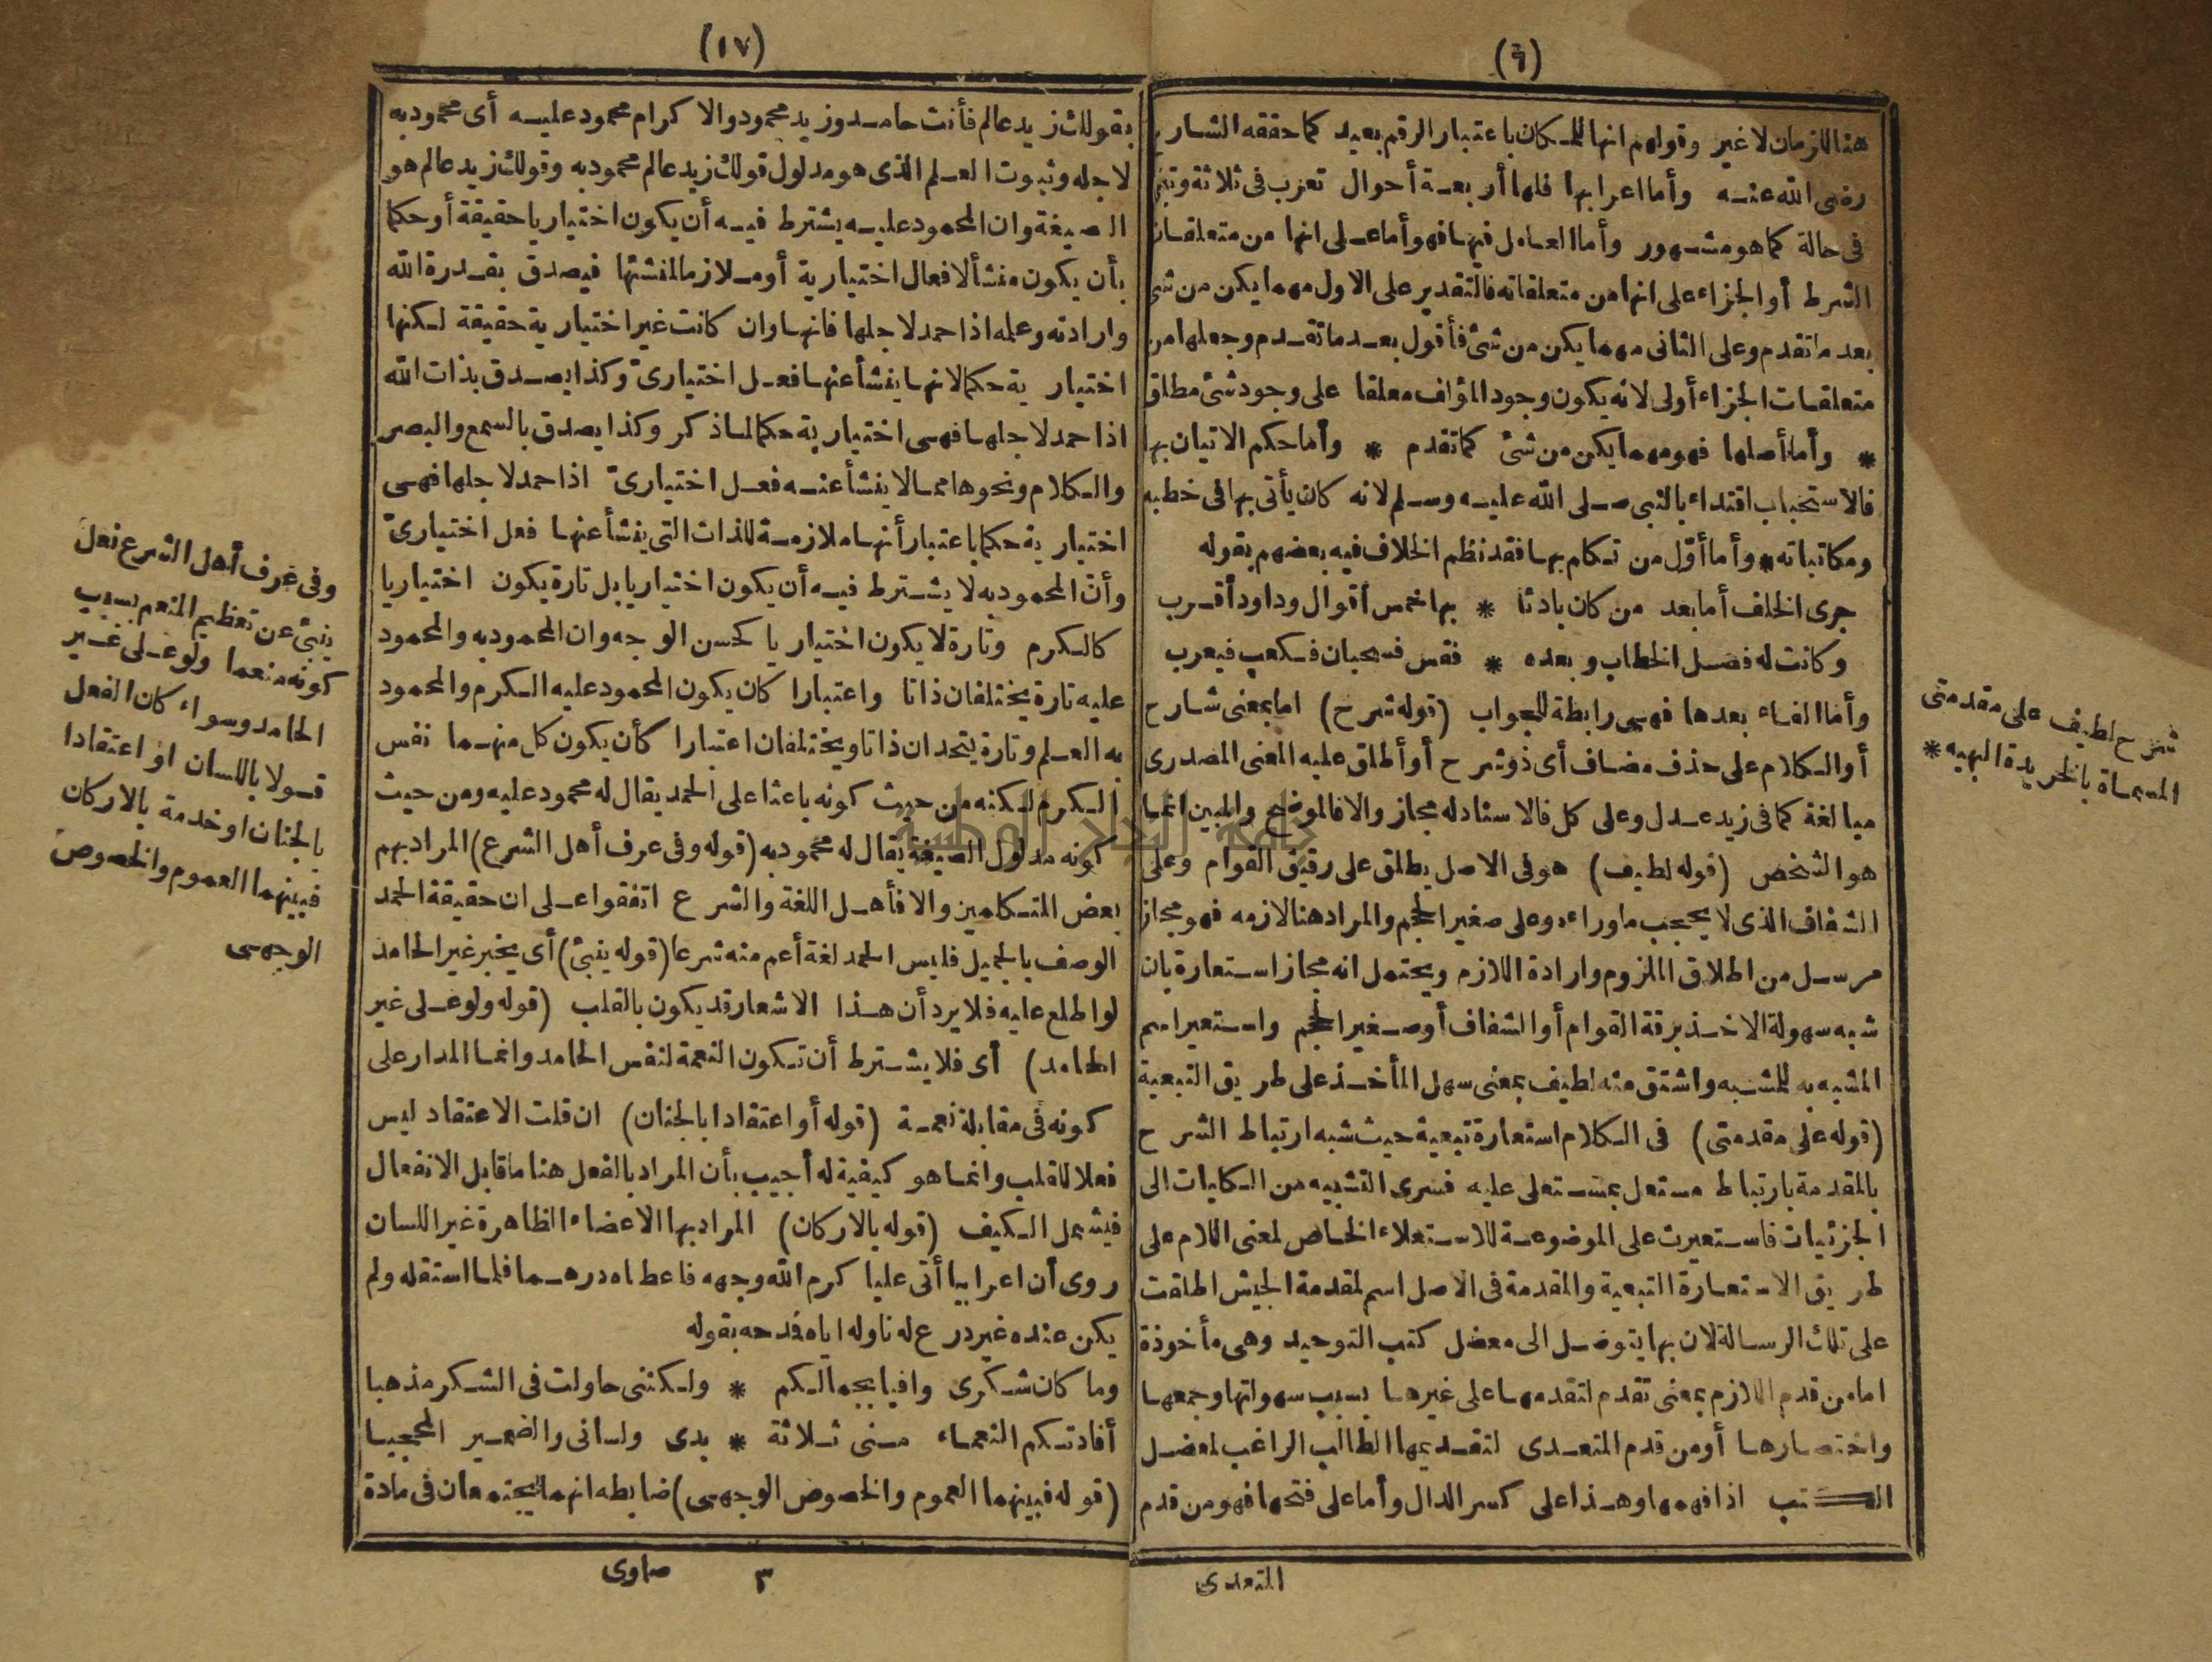 (٩)
هنا للزمان لا غير وقولهم انها للمكان باعتبار الرقم بعيد كما حققه الشارح
رضى الله عنه وأما اعرابها فلها أربعة أحوال تعرب فى ثلاثة وتبنى
فى حالة كما هو مشهور وأما العامل فيها فهو أما على انها من متعلقات
الشرط أو الجزاء على انها من متعلقاته فالتقدير على الاول مهما يكن من شئ
بعد ما تقدم وعلى الثانى مهما يكن من شئ فأقول بعد ما تقدم وجعلها من
متعلقات الجزاء أولى لانه يكون وجود المؤلف معلقا على وجود شئ مطلق
* وأما أصلها فهو مهما يكن من شئ كما تقدم * وأما حكم الاتيان بها
فالاستحباب اقتداء بالنبى صلى الله عليه وسلم لانه كان يأتى بها فى خطبه
ومكاتباته * وأما أوّل من تكلم بها فقد نظم الخلاف فيه بعضهم بقوله
جرى الخلف أما بعد من كان بادئا * بها خمس أقوال وداود أقرب
وكانت له فصل الخطاب وبعده * فقس فسحبان فكعب فيعرب
وأما الفاء بعدها فهى رابطة للجواب (قوله شرح) اما بمعنى شارح
أو الكلام على حذف مضاف أى ذو شرح أو أطلق عليه المعنى المصدرى
مبالغة كما فى زيد عدل وعلى كل فالاسناد له مجاز والا فالموضح والمبين انما
هو الشخص (قوله لطيف) هو فى الاصل يطلق على رقيق القوام وعلى
الشفاف الذى لا يحجب ما وراءه وعلى صغير الحجم والمراد هنا لازمه فهو مجاز
مرسل من اطلاق الملزوم وارادة اللازم ويحتمل انه مجاز استعارة بان
شبه سهولة الاخذ برقة القوام أو الشفاف أو صغير الحجم واستعير اسم
المشبه به للمشبه واشتق منه لطيف بمعنى سهل المأخذ على طريق التبعية
(قوله على مقدمتى) فى الكلام استعارة تبعية حيث شبه ارتباط الشرح
بالمقدمة بارتباط مستعل بمستعلى عليه فسرى التشبيه من الكليات الى
الجزئيات فاستعيرت على الموضوعة للاستعلاء الخاص لمعنى اللام على
طريق الاستعارة التبعية والمقدمة فى الاصل اسم لمقدمة الجيش اطلقت
على تلك الرسالة لان بها يتوصل الى معضل كتب التوحيد وهى مأخوذة
اما من قدم اللازم بمعنى تقدم لتقدمها على غيرها بسبب سهولتها وجمعها
واختصارها أو من قدم المتعدى لتقديمها الطالب الراغب لمعضل
الكتب اذا فهمها وهذا على كسر الدال وأما على فتحها فهو من قدم
المتعدى
شرح لطيف على مقدمتى
المسماة بالخريدة البهيه *
(١٧)
بقولك زيد عالم فأنت حامد وزيد محمود والاكرام محمود عليه أى محمود به
لاجله وثبوت العلم الذى هو مدلول قولك زيد عالم محمود به وقولك زيد عالم هو
الصيغة وان المحمود عليه يشترط فيه أن يكون اختياريا حقيقة أو حكما
بأن يكون منشألافعال اختيارية أو ملازما لمنشئها فيصدق بقدرة الله
وارادته وعلمه اذا حمد لاجلها فانها وان كانت غير اختيارية حقيقة لكنها
اختيارية حكما لانها ينشأ عنها فعل اختيارىّ وكذا يصدق بذات الله
اذا حمد لاجلها فهى اختيارية حكما لما ذكر وكذا يصدق بالسمع والبصر
والكلام ونحوها مما لا ينشأ عنه فعل اختيارىّ اذا حمد لاجلها فهى
اختيارية حكما باعتبار أنها ملازمة للذات التى ينشأ عنها فعل اختيارىّ
وأنّ المحمود به لا يشترط فيه أن يكون اختياريا بل تارة يكون اختياريا
كالكرم وتارة لا يكون اختياريا كحسن الوجه وان المحمود به والمحمود
عليه تارة يختلفان ذاتا واعتبارا كان يكون المحمود عليه الكرم والمحمود
به العلم وتارة يتحدان ذاتا ويختلفان اعتبارا كأن يكون كل منهما نفس
الكرم لكنه من حيث كونه باعثا على الحمد يقال له محمود عليه ومن حيث
كونه مدلول الصيغة يقال له محمود به (قوله وفى عرف أهل الشرع) المراد بهم
بعض المتكلمين والا فأهل اللغة والشرع اتفقوا على ان حقيقة الحمد
الوصف بالجميل فليس الحمد لغة أعم منه شرعا (قوله ينبئ) أى يخبر غير الحامد
لو اطلع عليه فلا يرد أن هذا الاشعار قد يكون بالقلب (قوله ولو على غير
الحامد) أى فلا يشترط أن تكون النعمة لنفس الحامد وانما المدار على
كونه فى مقابلة نعمة (قوله أو اعتقادا بالجنان) ان قلت الاعتقاد ليس
فعلا للقلب وانما هو كيفية له أجيب بأن المراد بالفعل هنا ما قابل الانفعال
فيشمل الكيف (قوله بالاركان) المراد بها الاعضاء الظاهرة غير اللسان
روى أن اعرابيا أتى عليا كرم الله وجهه فاعطاه درهما فلما استقله ولم
يكن عنده غير درع له ناوله اياه فدحه بقوله
وما كان شكرى وافيا بجمالكم * ولكننى حاولت فى الشكر مذهبا
أفادتكم النعماء منى ثلاثة * يدى ولسانى والضمير المحجبا
(قوله فبينهما العموم والخصوص الوجهى) ضابطه انهما يجتمعان فى مادة
٣ صاوى
وفى عرف أهل الشرع فعل
ينبئ عن تعظيم المنعم بسبب
كونه منعما ولو على غير
الحامد وسواء كان الفعل
قولا باللسان او اعتقادا
بالجنان او خدمة بالاركان
فبينهما العموم والخصوص
الوجهى